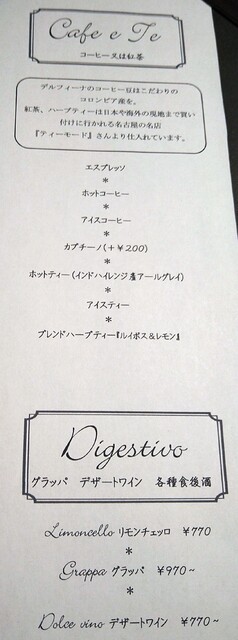 Cafe e Te
コーヒー又は紅茶
デルフィーナのコーヒー豆はこだわりの
コロンビア産を。
紅茶、ハーブティーは日本や海外の現地まで買い
付けに行かれる名古屋の名店
『ティーモード』さんより仕入れています。
エスプレッソ
*
ホットコーヒー
*
アイスコーヒー
*
カプチーノ(+￥200)
*
ホットティー(インドハイレンジ産アールグレイ)
*
アイスティー
*
ブレンドハーブティー『ルイボス&レモン』
Digestivo
グラッパ　デザートワイン　各種食後酒
Limoncello リモンチェッロ　￥770
*
Grappa グラッパ　￥970~
*
Dolce vino デザートワイン　￥770~